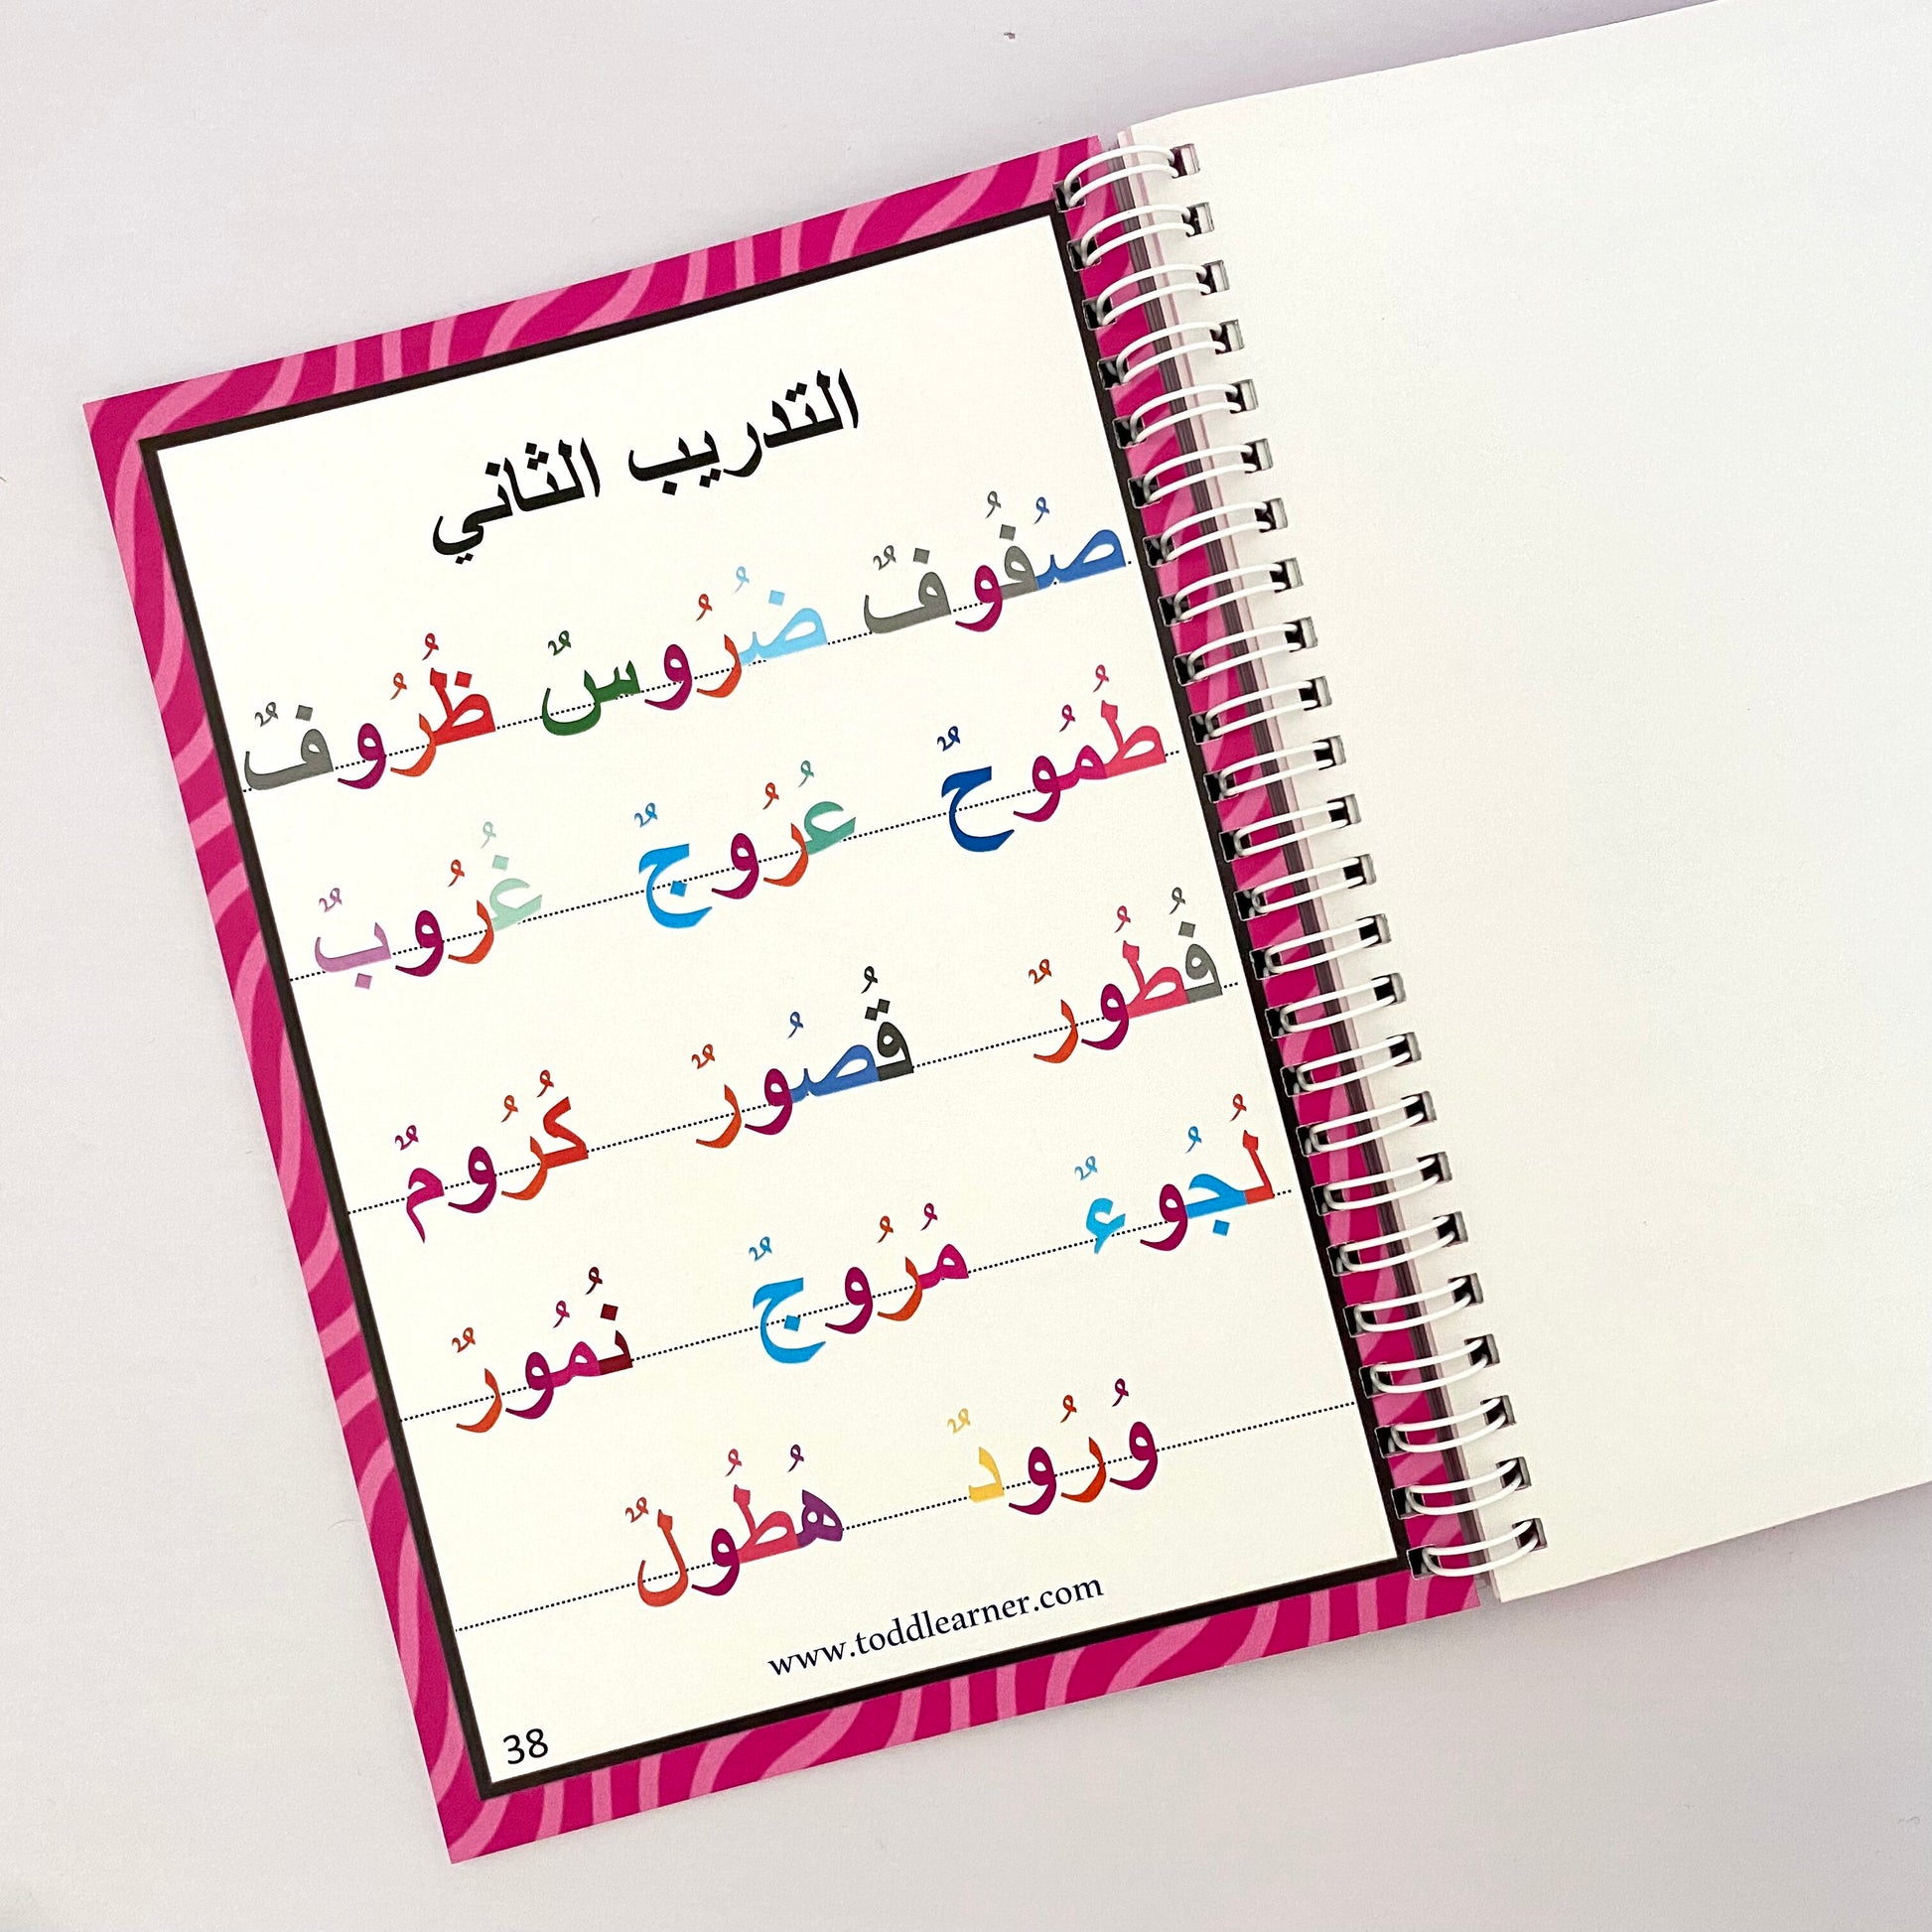 التدريب الثاني
صُفُوفٌ ضُرُوسٌ ظُرُوفٌ
طُمُوحٌ عُرُوجٌ غُرُوبٌ
فُطُورٌ قُصُورٌ كُرُومٌ
لُجُوءٌ مُرُوجٌ نُمُورٌ
وُرُودٌ هُطُولٌ
www.toddlearner.com
38